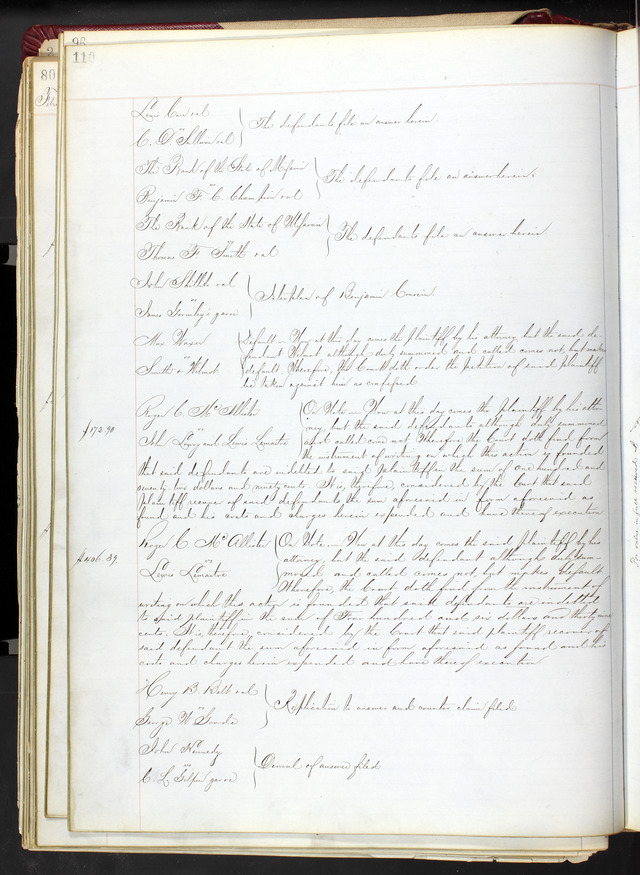 96
110
2
80
Lewis Case et al
vs
C. O'Sullivan et al
The defendants file an answer herein
The Bank of the State of Missouri
vs
Benjamin F. C. Champlin et al
The defendants file an answer herein
The Bank of the State of Missouri
vs
Thomas F. Smith et al
The defendants file an answer herein
John et al
vs
James garn
Interplea of Benjamin
Max
vs
Smith or
Default - Now at this day comes the plaintiff by his attorney but the said de-
fendant although duly summoned and called comes not, but makes
default. Therefore, the Court doth order the petition of said plaintiff
be taken against him as confessed
$172.90
Roger C McAllister
vs
John and Lewis Lemaitre
On Note - Now at this day comes the plaintiff by his attor-
ney, but the said defendants although duly summoned
and called come not Therefore the Court doth find from
the instrument of writing on which this action is founded
that said defendants are indebted to said plaintiff in the sum of One hundred and
seventy two dollars and ninety cents. It is, therefore, considered by the Court that said
plaintiff recover of said defendants the sum aforesaid in form aforesaid as
found and his costs and charges herein expended and have thereof execution
$406.39.
Roger C McAllister
vs
Lewis Lemaitre
On Note - Now at this day comes the said plaintiff by his
attorney, but the said defendant although duly sum-
moned and called comes not, but makes default.
Therefore, the Court doth find from the instrument of
writing on which this action is founded that said defendants are indebted
to said plaintiff in the sum of Four hundred and six dollars and thirty nine
cents. It is, therefore, considered by the Court that said plaintiff recover of
said defendant the sum aforesaid in form aforesaid as found and his
costs and charges herein expended and have thereof execution
Henry B. Belt et al
vs
George W
Replication to answer and counter claim filed
John Kennedy
vs
C. L. Gilpin garn
Denial of answer filed